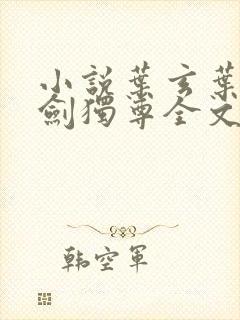 小說葉玄葉
劍獨尊全文
韩空軍